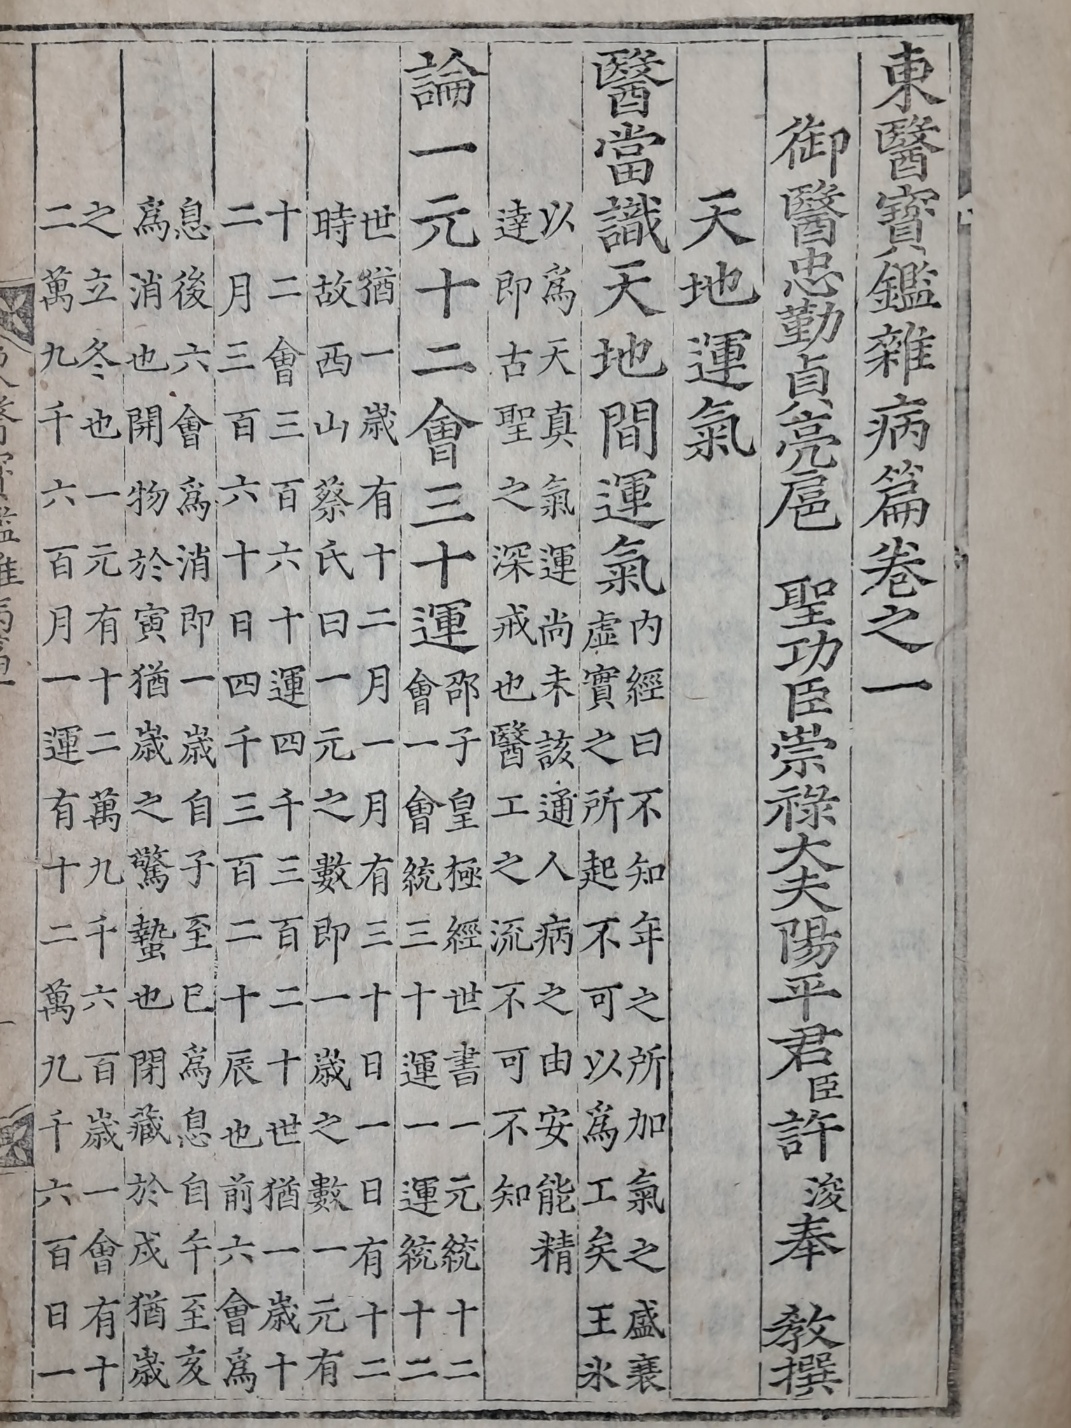 東醫寶鑑雜病篇卷之一
御醫忠勤貞亮扈 聖功臣崇祿大夫陽平君臣許浚奉 教撰
天地運氣
醫當識天地間運氣
內經曰不知年之所加氣之盛衰
虛實之所起不可以爲工矣王氷
以爲天真氣運尚未該通人病之由安能精
達即古聖之深戒也醫工之流不可不知
論一元十二會三十運
邵子皇極經世書一元統十二
會一會統三十運一運統十二
世猶一歲有十二月一月有三十日一日有十二
時故西山蔡氏曰一元之數即一歲之數一元有
十二會三百六十運四千三百二十世猶一歲十
二月三百六十日四千三百二十辰也前六會爲
息後六會爲消即一歲自子至巳爲息自午至亥
爲消也開物於寅猶歲之驚蟄也閉藏於戌猶歲
之立冬也一元有十二萬九千六百歲一會有十
二萬九千六百月一運有十二萬九千六百日一